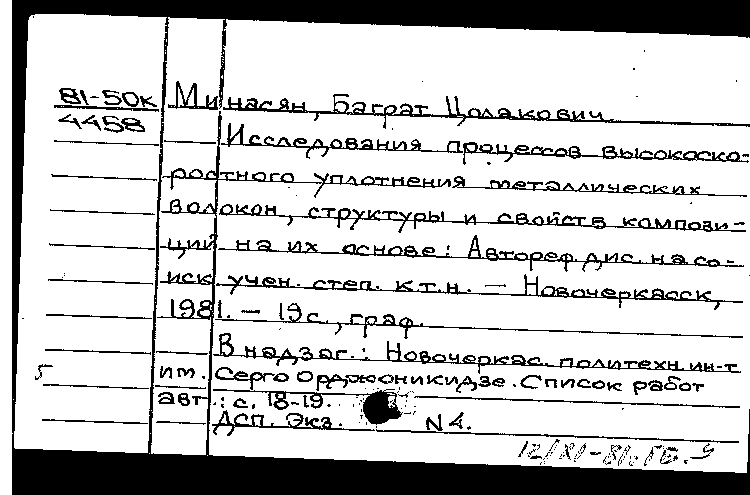 81-50к Минасян, Баграт Цолакович
4458
Исследования процессов высокоско-
ростного уплотнения металлических
волокон, структуры и свойств компози-
ций на их основе: Автореф. дис. на со-
иск. учен. степ. к.т.н. — Новочеркасск,
1981. — 19с., граф.
В надзаг.: Новочеркас. политехн. ин-т
5 им. Серго Орджоникидзе. Список работ
авт.: с. 18-19.
ДСП. Экз. N 4.
12/XI-81.